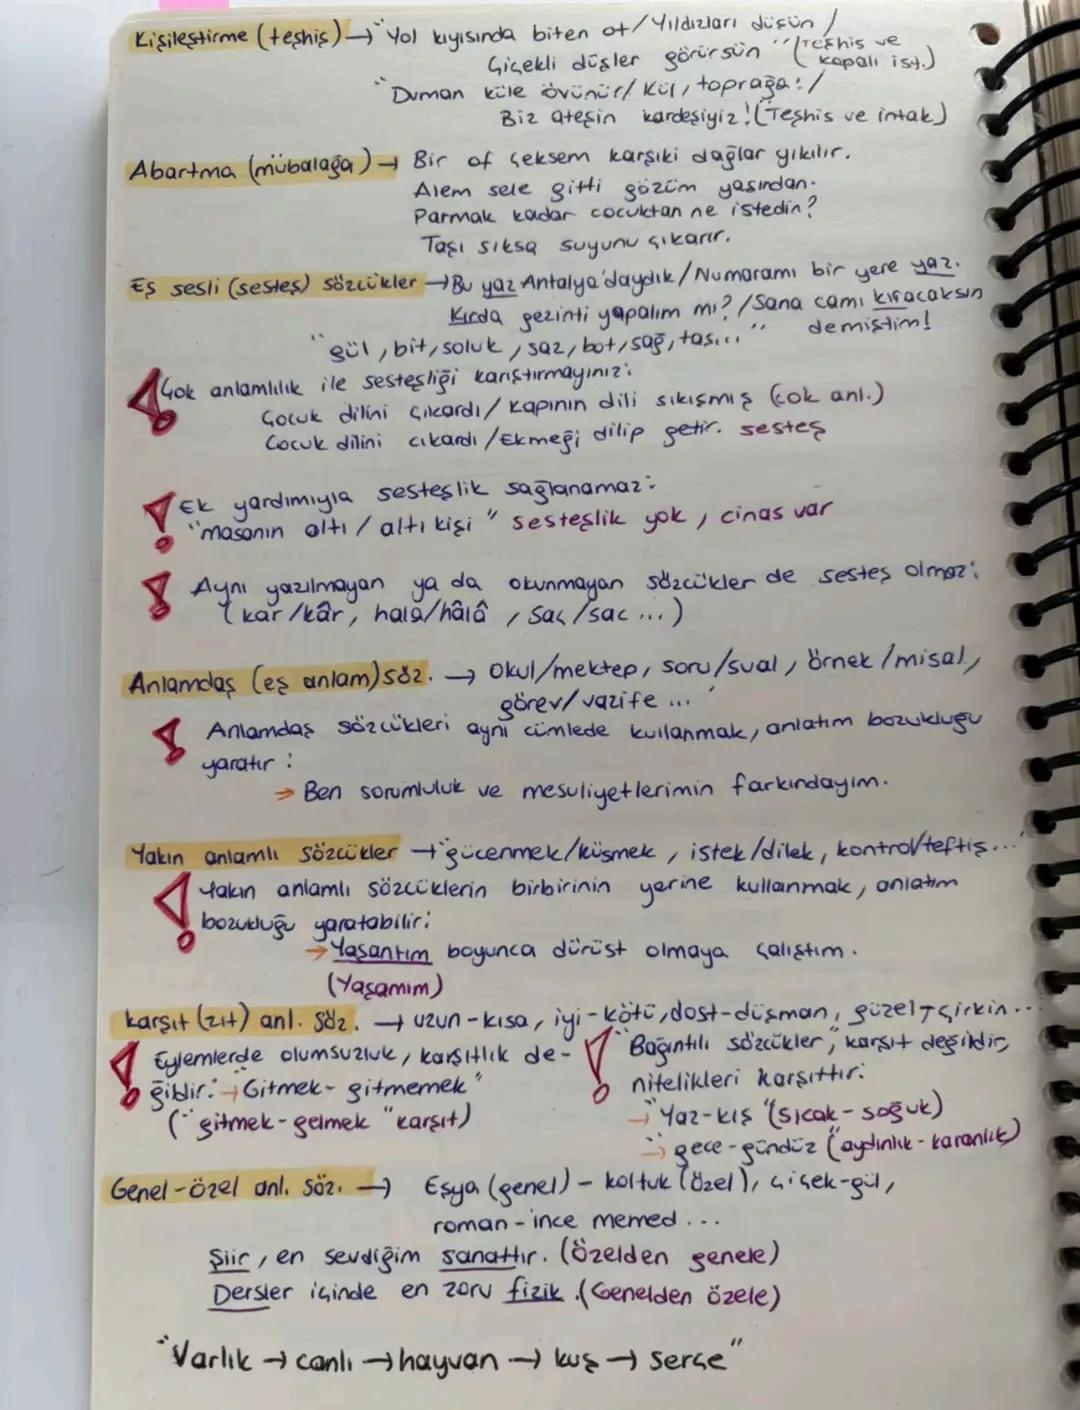 Kişileştirme (teşhis) → "Yol kıyısında biten ot / Yıldızları düşün /
Çiçekli düşler görürsün" (Teşhis ve kapalı ist.)
"Duman küle övünür / Kül, toprağa: /
Biz ateşin kardeşiyiz! (Teşhis ve intak)
Abartma (mübalağa) → Bir of çeksem karşıki dağlar yıkılır.
Alem sele gitti gözüm yaşından.
Parmak kadar cocuktan ne istedin?
Taşı sıksa suyunu çıkarır.
Eş sesli (sesteş) sözcükler → Bu yaz Antalya'daydık / Numaramı bir yere yaz.
Kırda gezinti yapalım mı? / Sana camı kıracaksın
demiştim!
"gül, bit, soluk, saz, bot, sağ, taş..."
Çok anlamlılık ile sesteşliği karıştırmayınız:
Çocuk dilini çıkardı / Kapının dili sıkışmış (çok anl.)
Cocuk dilini cıkardı / Ekmeği dilip getir. sesteş
Ek yardımıyla sesteşlik sağlanamaz:
"masanın altı / altı kişi" sesteşlik yok, cinas var
Aynı yazılmayan ya da okunmayan sözcükler de sesteş olmaz:
(kar/kâr, hala/hâlâ, Saç/sac ...)
Anlamdaş (eş anlam) söz. → Okul/mektep, soru/sual, örnek/misal,
görev/vazife ...
Anlamdaş sözcükleri aynı cümlede kullanmak, anlatım bozukluğu
yaratır:
→ Ben sorumluluk ve mesuliyetlerimin farkındayım.
Yakın anlamlı sözcükler → "gücenmek/küsmek, istek/dilek, kontrol/teftiş..."
Yakın anlamlı sözcüklerin birbirinin yerine kullanmak, anlatım
bozukluğu yaratabilir:
→ Yaşantım boyunca dürüst olmaya çalıştım.
(Yaşamım)
karşıt (zıt) anl. söz. → uzun-kısa, iyi-kötü, dost-düşman, güzel-çirkin...
Eylemlerde olumsuzluk, karşıtlık de-
ğildir: → Gitmek- gitmemek"
("gitmek-gelmek" karşıt)
"Bağıntılı sözcükler", karşıt değildir,
nitelikleri karşıttır:
→ "Yaz-kış" (sıcak-soğuk)
→ gece-gündüz ("aydınlık-karanlık)
Genel-özel anl. söz. → Eşya (genel) - koltuk (özel), çiçek-gül,
roman-ince memed ...
Şiir, en sevdiğim sanattır. (Özelden genele)
Dersler içinde en zoru fizik. (Genelden özele)
"Varlık → canlı → hayvan → kuş → serçe"